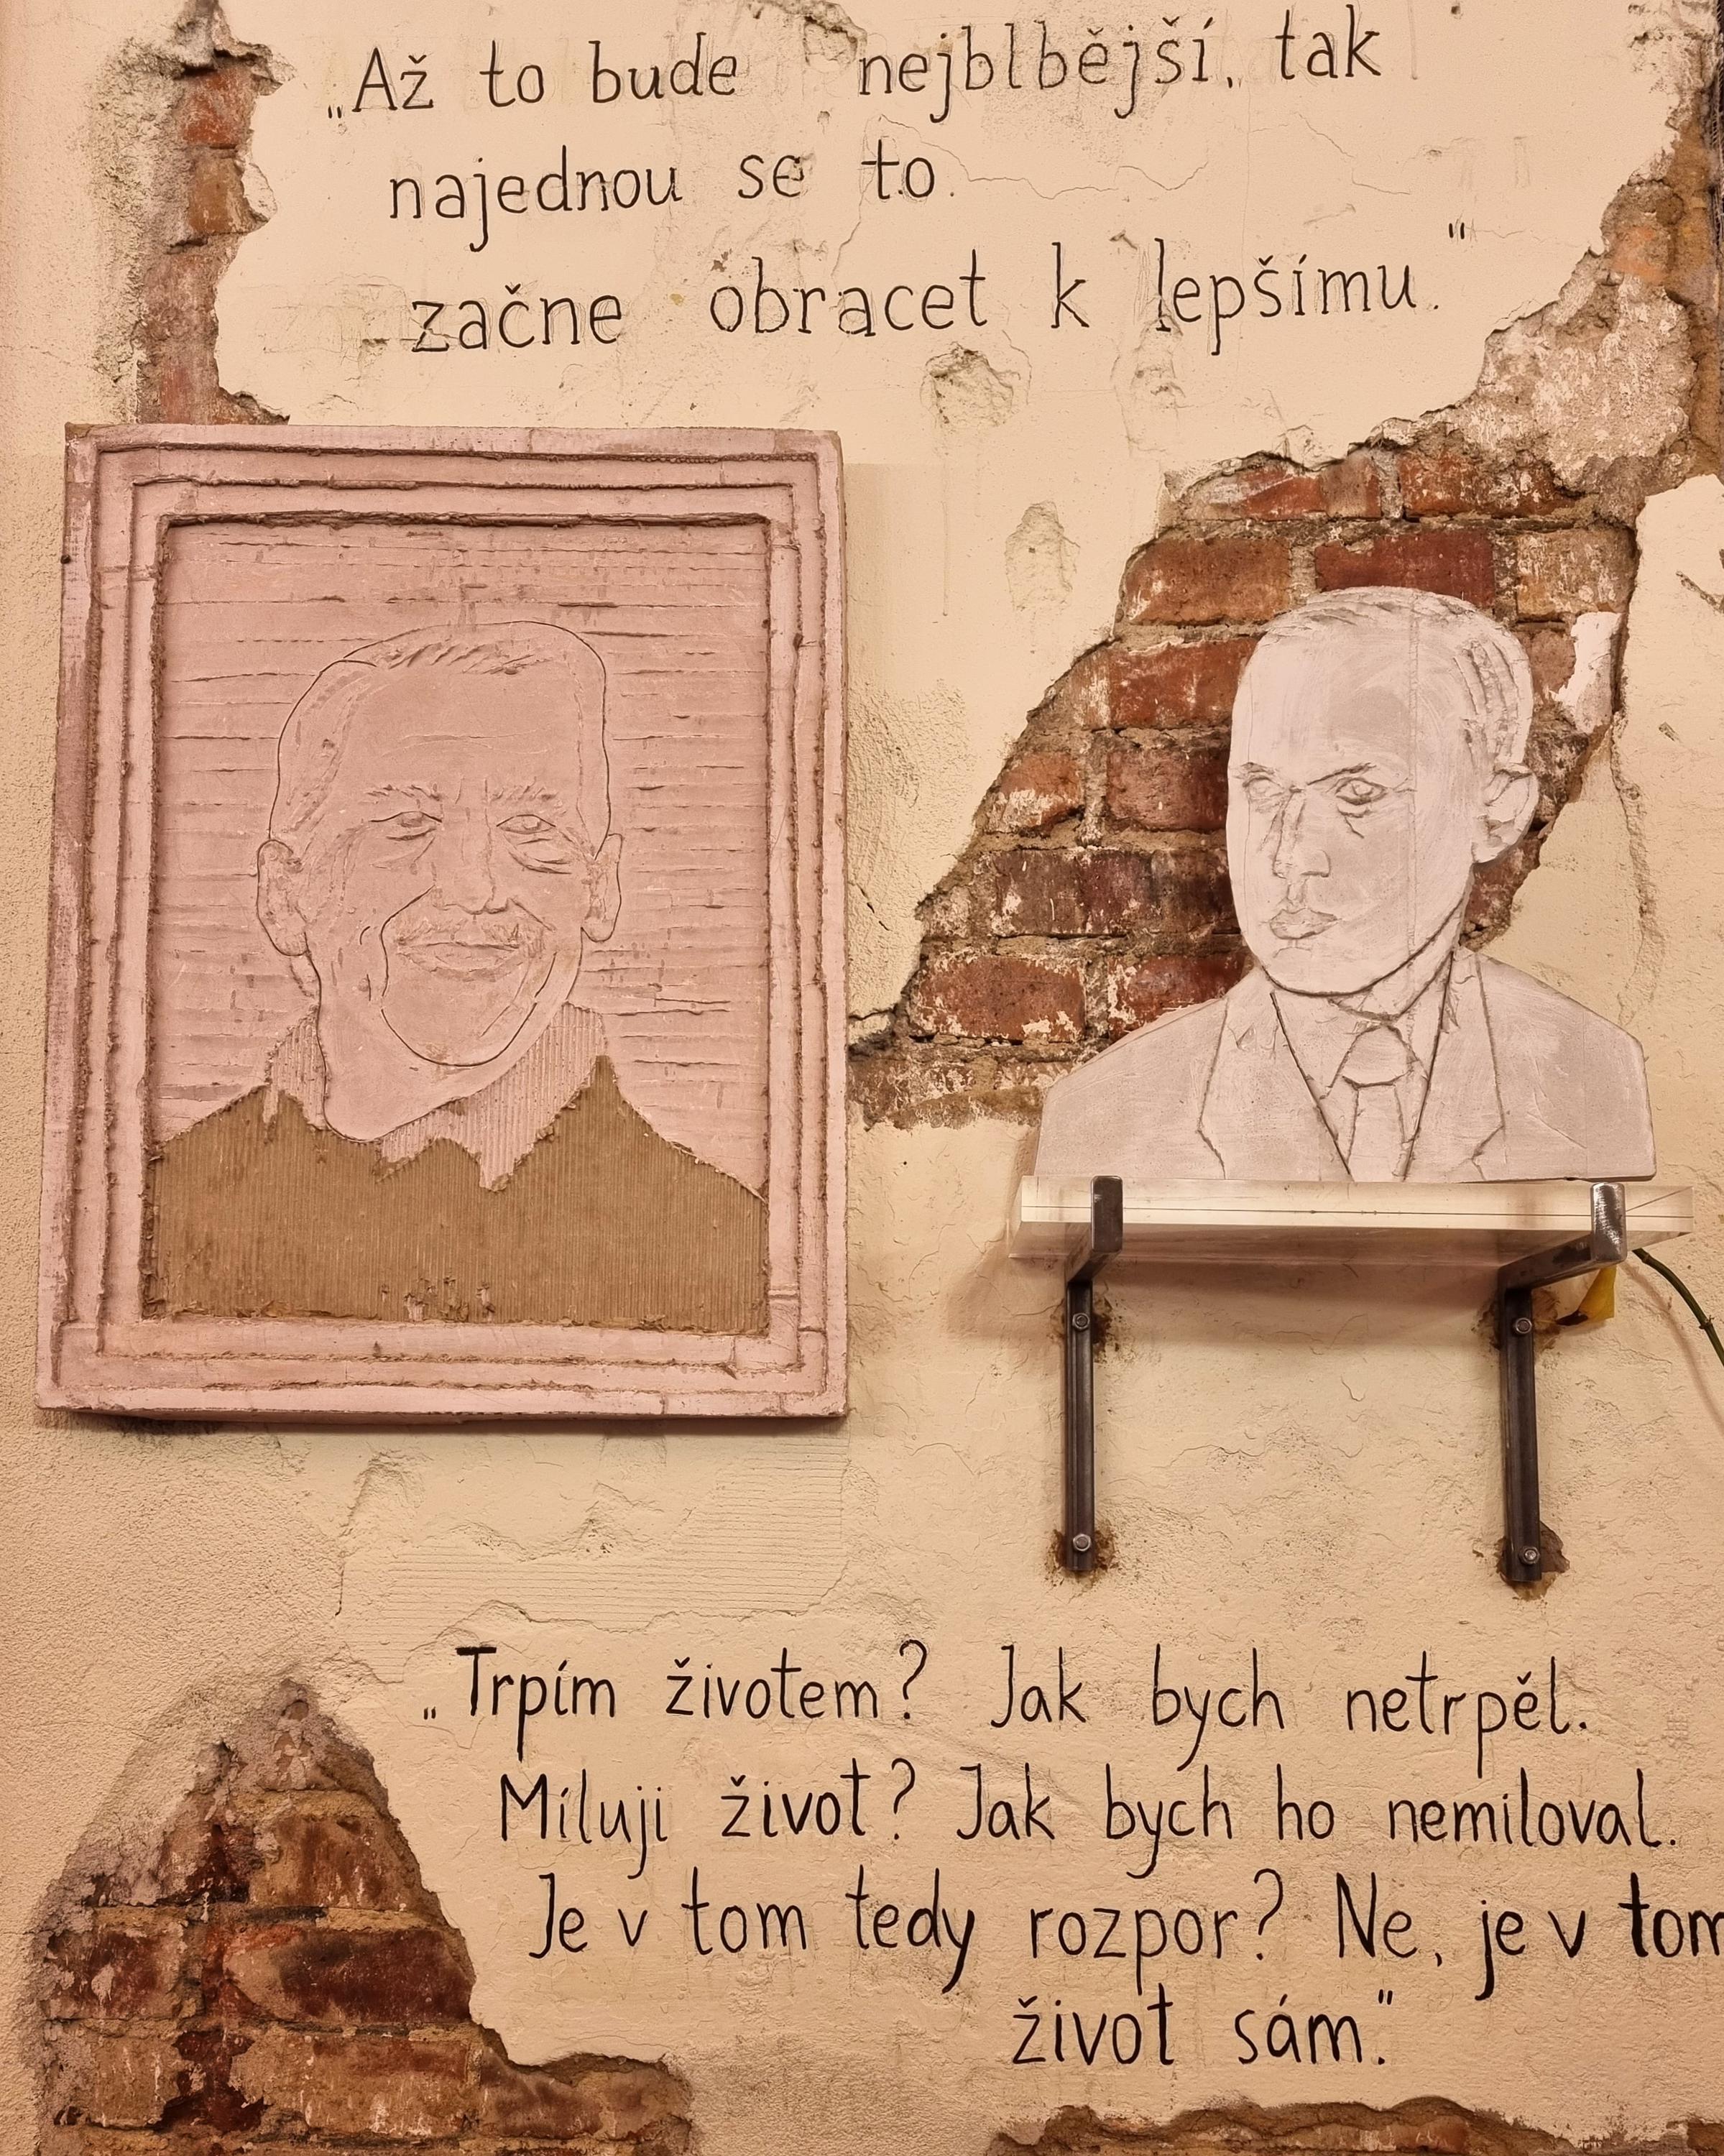 „Až to bude nejblbější, tak
najednou se to
začne obracet k lepšímu."
„Trpím životem? Jak bych netrpěl.
Miluji život? Jak bych ho nemiloval.
Je v tom tedy rozpor? Ne, je v tom
život sám."